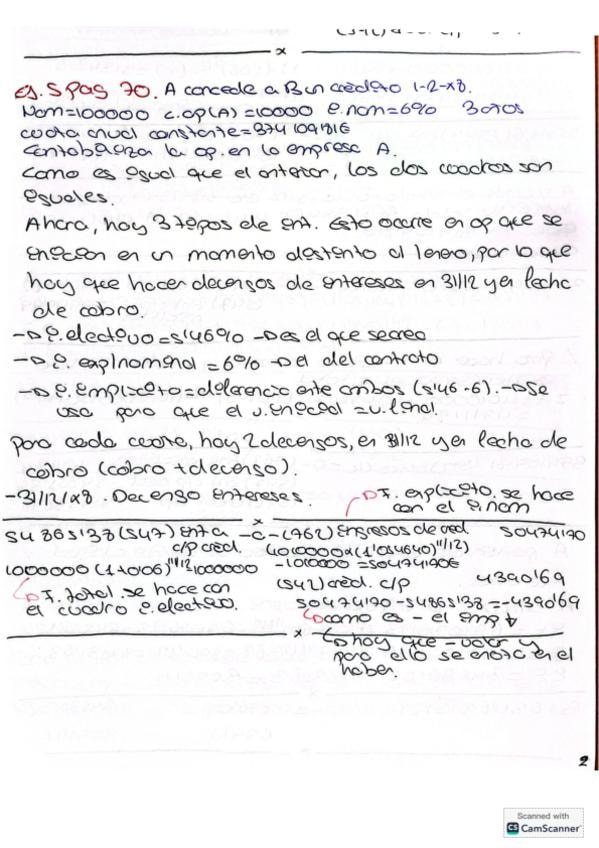 ej. 5 pag 70. A concede a B un crédito 1-2-x8.
Nom=100000 c.op(A)=10000 e.nom=6% 3 años
cuota anual constante=374109'816
Contabiliza la op. en la empresa A.
Como es igual que el anterior, los dos cuadros son
iguales.
Ahora, hay 3 tipos de int. Esto ocurre en op que se
inician en un momento distinto al 1 enero, por lo que
hay que hacer devengos de intereses en 31/12 y en fecha
de cobro.
-D i. efectivo = 5'46% -D es el que se crea
-D i. exp/nominal = 6% -D el del contrato
-D i. implícito = diferencia entre ambos (5'46-6). -D se
usa para que el v. inicial = v. final.
Para cada cuota, hay 2 devengos, en 31/12 y en fecha de
cobro (cobro + devengo).
-31/12/x8. Devengo intereses.
D I. explícito. se hace
con el i. nom
x
54865'38 (547) int a
c/p créd.
-a- (762) ingresos de créd
50474'170
1010000x(1'054640)^11/12
-1010000=50474'1706
1000000(1+0'06)^11/12-1000000
(542) créd. c/p
4390'69
D I. total. se hace con
el cuadro i. efectivo.
50474'170-54865'38=-4390'69
D como es - el imp
x
D hay que
para ello se anota en el
haber
2
Scanned with
CS CamScanner